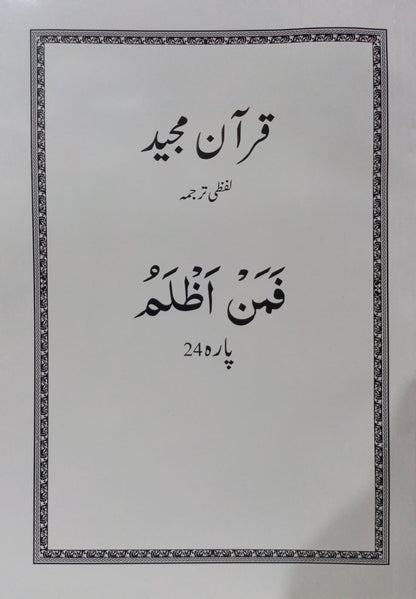 قرآن مجید
لفظی ترجمہ
فَمَنْ اَظْلَمُ
پارہ 24